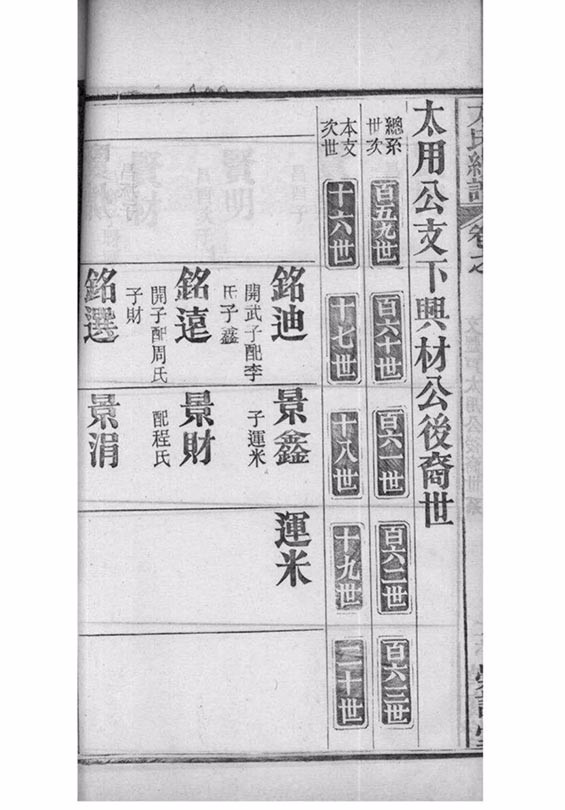 太用公支下興材公後裔世
總系世次
百五九世
百六十世
百六一世
百六二世
百六三世
本支次世
十六世
十七世
十八世
十九世
二十世
銘迪
開武子配李
氏子鑫
景鑫
子運米
運米
銘遠
開子配周氏
子財
景財
配程氏
銘選
景涓